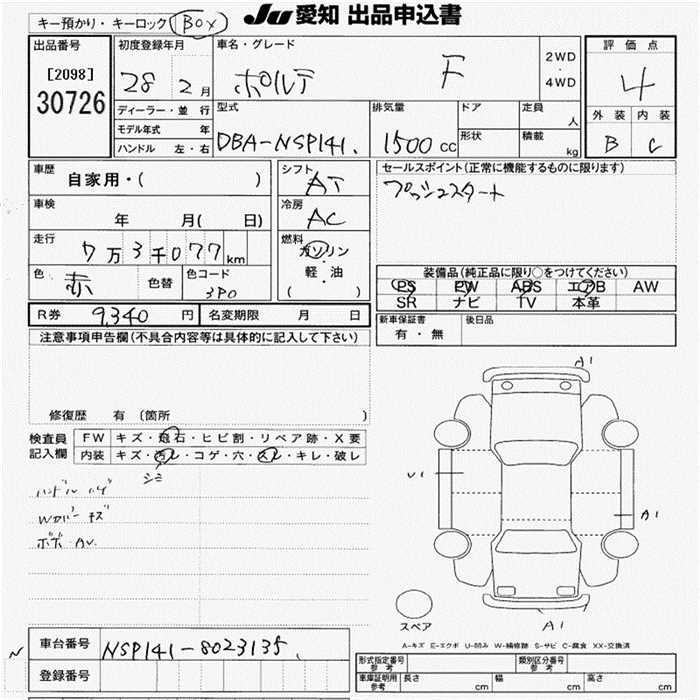 キー預かり・キーロック BOX
JU 愛知 出品申込書
出品番号
[2098]
30726
初度登録年月
28 2月
ディーラー・並 行
モデル年式 年
ハンドル 左・右
車名・グレード
ポルテ F
2WD
・
4WD
型式
DBA-NSP141.
排気量
1500 CC
ドア
形状
定員
人
積載
kg
評価点
4
外装 内装
B C
車歴
自家用・( )
車検
年 月( 日)
走行
7万3千077km
色
赤 色替
色コード
3P0
シフト
AT
冷房
AC
燃料
ガソリン
軽・油
( )
セールスポイント(正常に機能するものに限ります)
プッシュスタート
装備品(純正品に限り○をつけてください)
PS PW ABS エアB AW
SR ナビ TV 本革
R券 9,340 円 名変期限 月 日
新車保証書
有・無
後日品
注意事項申告欄(不具合内容等は具体的に記入して下さい)
修復歴 有 (箇所 )
検査員
記入欄
FW キズ・飛石・ヒビ割・リペア跡・X要
内装 キズ・汚レ・コゲ・穴・スレ・キレ・破レ
シミ
ハンドル ハゲ
Wカバー キズ
A1
U1
A1
A1
スペア
A-キズ E-エクボ U-凹み W-補修跡 S-サビ C-腐食 XX-交換済
車台番号 NSP141-8023135.
登録番号
型式指定番号
参考
類別区分番号
参考
車庫証明用
参考
長さ cm 幅 cm 高さ cm